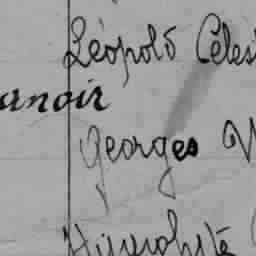 Léopold Céles
anoir
Georges
Hippolyte